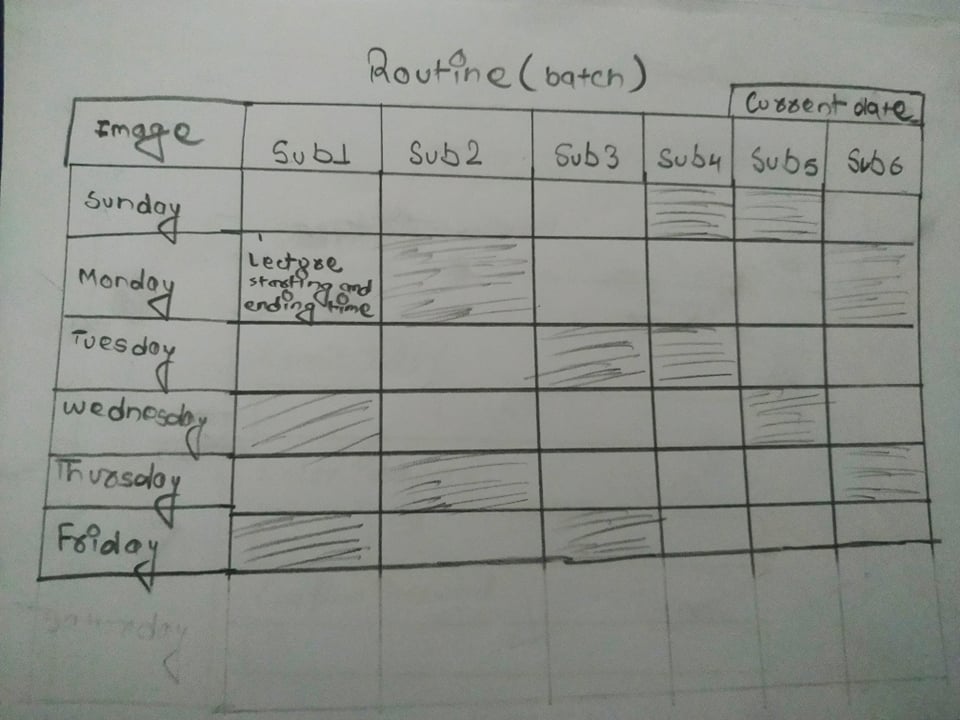 Routine (batch)
Current date
Image
Sub1
Sub2
Sub3
Sub4
Sub5
Sub6
Sunday
Monday
Lecture
starting and
ending time
Tuesday
Wednesday
Thursday
Friday